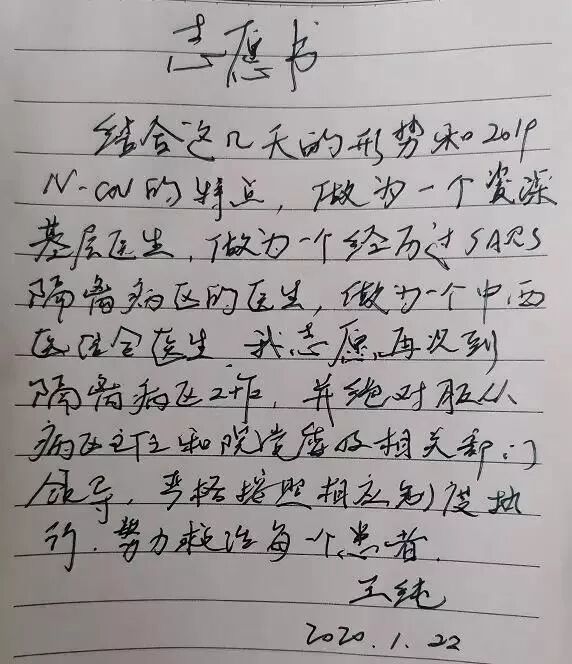 志愿书
结合这几天的形势和2019
N-CoV的特点，做为一个资深
基层医生，做为一个经历过SARS
隔离病区的医生，做为一个中西
医结合医生 我志愿再次到
隔离病区工作，并绝对服从
病区主任和院党委及相关部门
领导，严格按照相应制度执
行．努力救治每一个患者．
王纯
2020.1.22